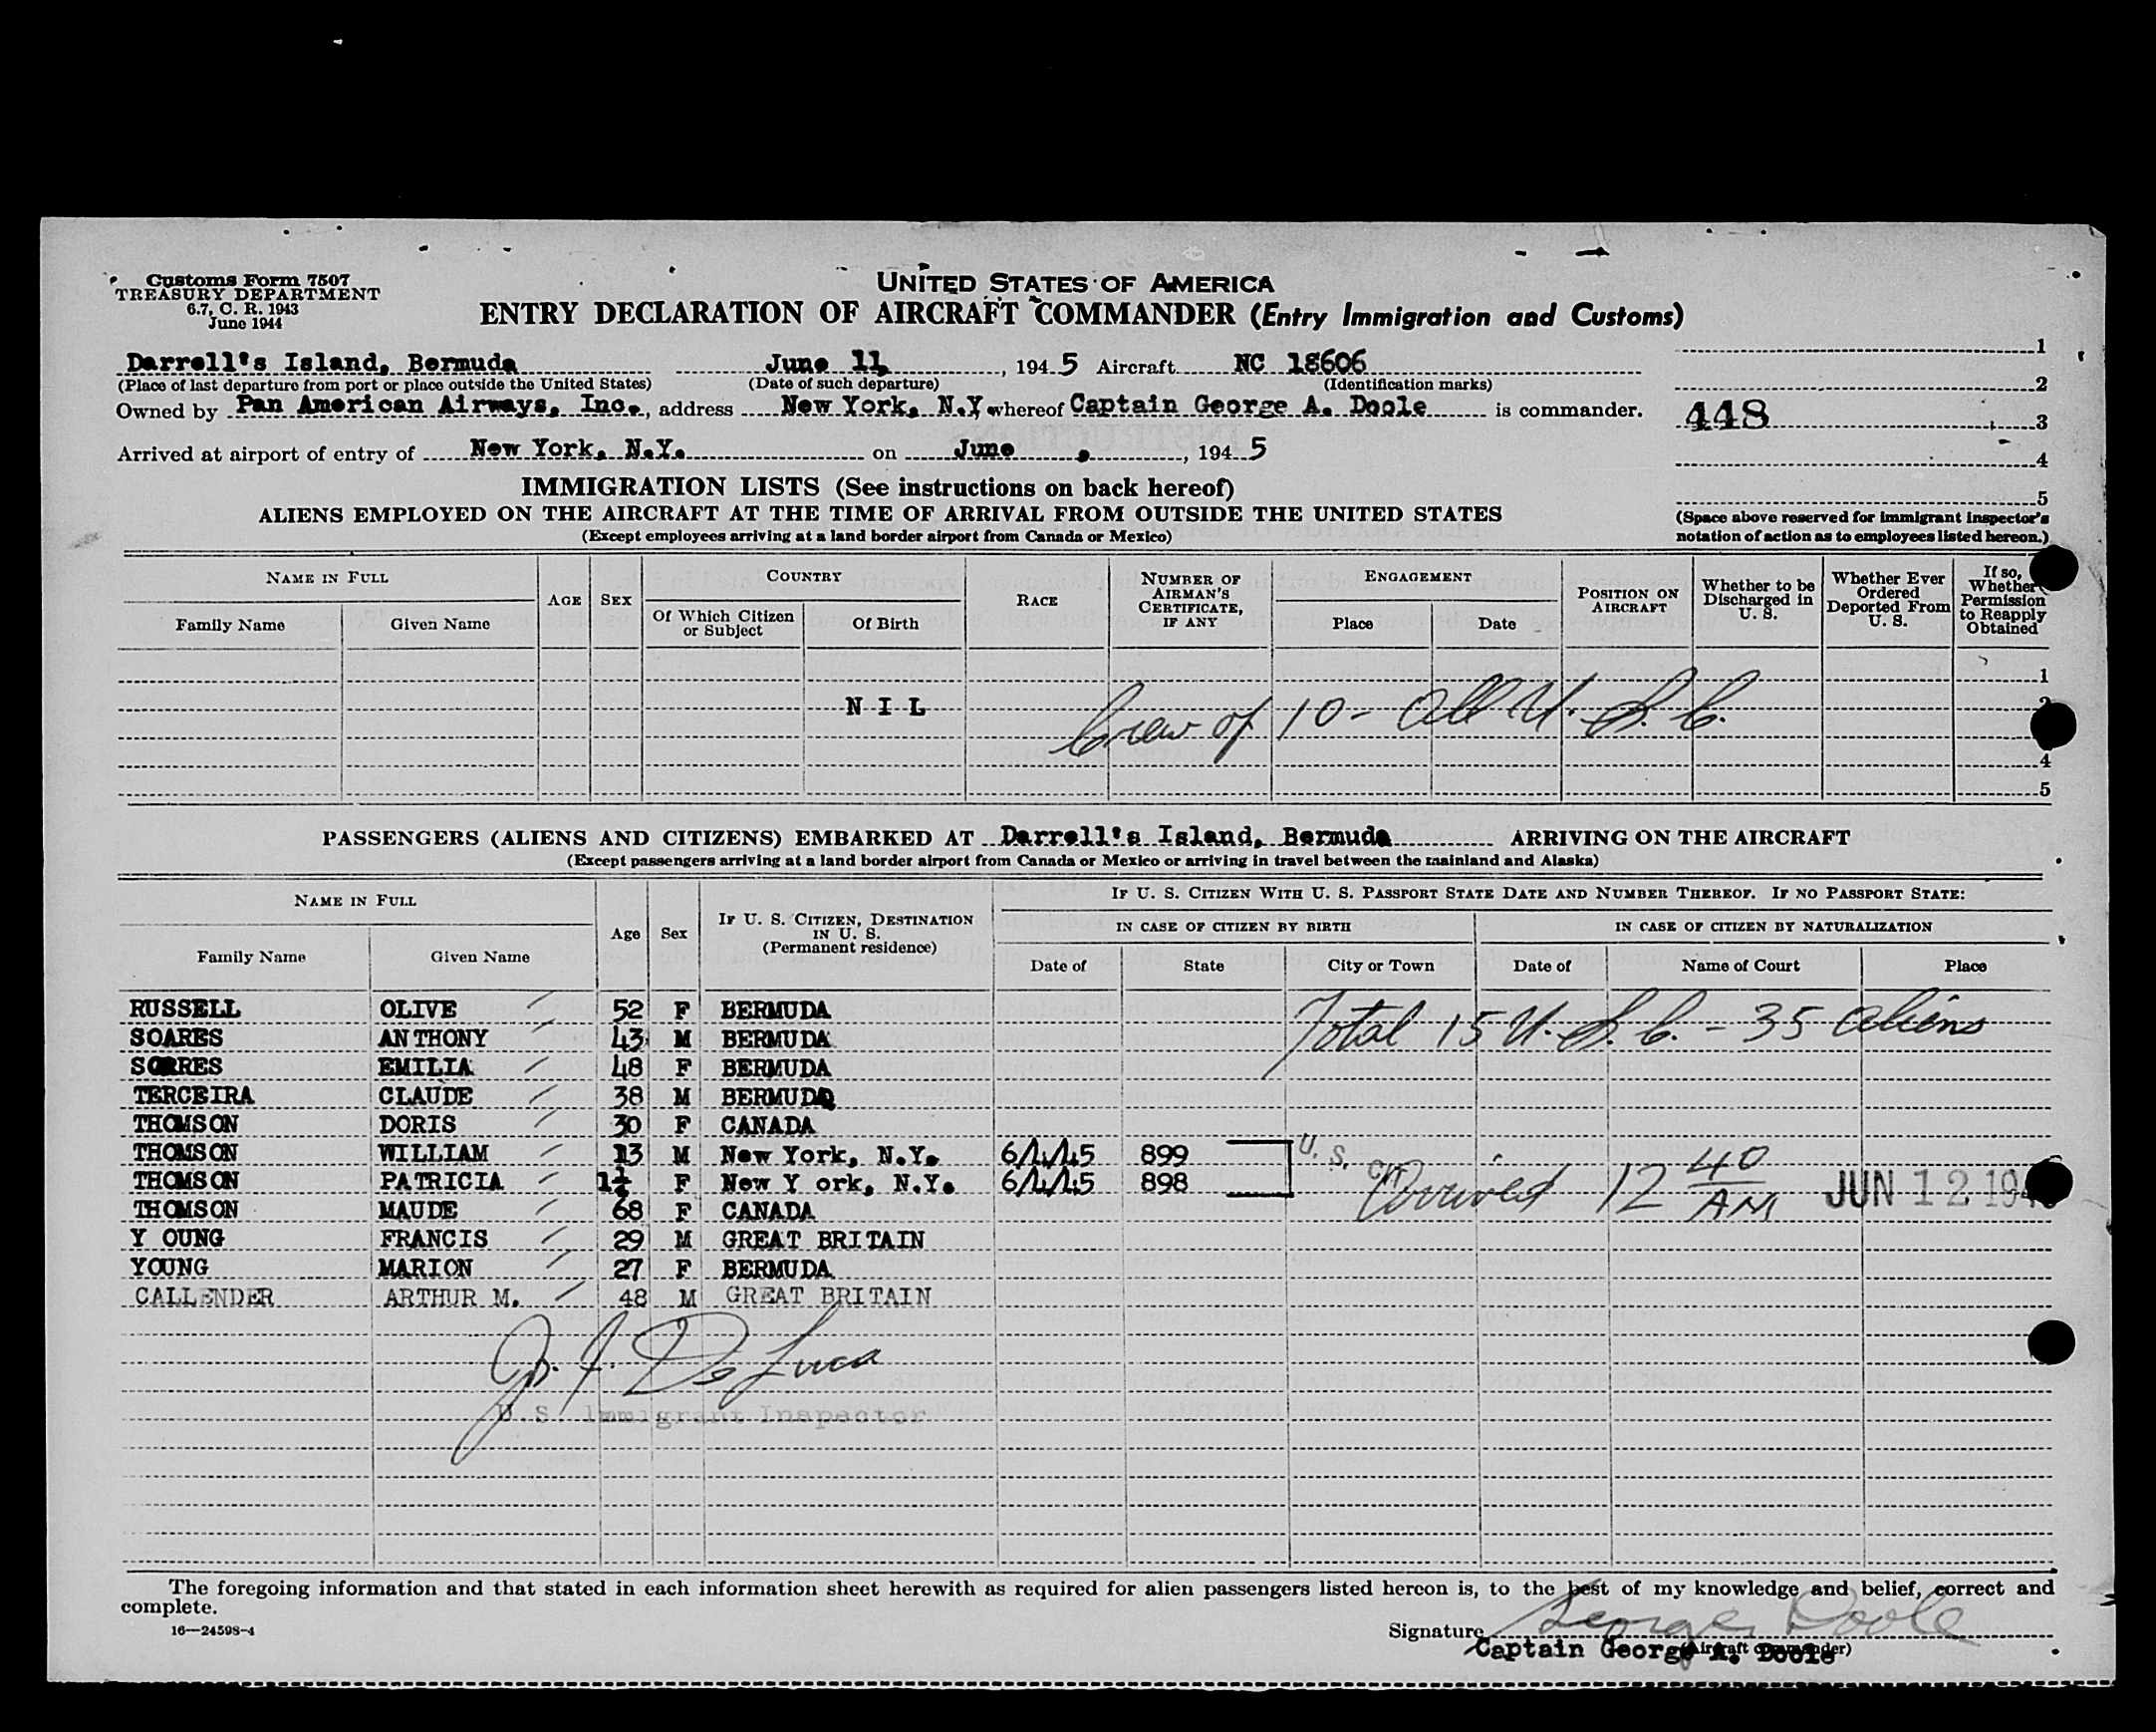 Customs Form 7507
TREASURY DEPARTMENT
6.7, C. R. 1943
June 1944
UNITED STATES OF AMERICA
ENTRY DECLARATION OF AIRCRAFT COMMANDER (Entry Immigration and Customs)
Darrell's Island, Bermuda June 11, 1945 Aircraft NC 18606
(Place of last departure from port or place outside the United States) (Date of such departure) (Identification marks)
Owned by Pan American Airways, Inc., address New York, N.Y. whereof Captain George A. Doole is commander.
Arrived at airport of entry of New York, N.Y. on June , 1945
1
2
448 3
4
5
(Space above reserved for immigrant inspector's
notation of action as to employees listed hereon.)
IMMIGRATION LISTS (See instructions on back hereof)
ALIENS EMPLOYED ON THE AIRCRAFT AT THE TIME OF ARRIVAL FROM OUTSIDE THE UNITED STATES
(Except employees arriving at a land border airport from Canada or Mexico)
NAME IN FULL
Family Name Given Name
AGE SEX
COUNTRY
Of Which Citizen or Subject Of Birth
RACE
NUMBER OF AIRMAN'S CERTIFICATE, IF ANY
ENGAGEMENT
Place Date
POSITION ON AIRCRAFT
Whether to be Discharged in U. S.
Whether Ever Ordered Deported From U. S.
If so, Whether Permission to Reapply Obtained
1
NIL Crew of 10 - all U. S. C.
4
5
PASSENGERS (ALIENS AND CITIZENS) EMBARKED AT Darrell's Island, Bermuda ARRIVING ON THE AIRCRAFT
(Except passengers arriving at a land border airport from Canada or Mexico or arriving in travel between the mainland and Alaska)
NAME IN FULL
Family Name Given Name
Age Sex
IF U. S. CITIZEN, DESTINATION IN U. S. (Permanent residence)
IF U. S. CITIZEN WITH U. S. PASSPORT STATE DATE AND NUMBER THEREOF. IF NO PASSPORT STATE:
IN CASE OF CITIZEN BY BIRTH IN CASE OF CITIZEN BY NATURALIZATION
Date of State City or Town Date of Name of Court Place
RUSSELL OLIVE 52 F BERMUDA
Total 15 U. S. C. - 35 aliens
SOARES ANTHONY 43 M BERMUDA
SORRES EMILIA 48 F BERMUDA
TERCEIRA CLAUDE 38 M BERMUDA
THOMSON DORIS 30 F CANADA
THOMSON WILLIAM 13 M New York, N.Y. 6/4/45 899 U. S. Cit
THOMSON PATRICIA 1¼ F New Y ork, N.Y. 6/4/45 898
Arrived 12 40 AM JUN 12 194
THOMSON MAUDE 68 F CANADA
Y OUNG FRANCIS 29 M GREAT BRITAIN
YOUNG MARION 27 F BERMUDA
CALLENDER ARTHUR M. 48 M GREAT BRITAIN
De Luca
U.S. Immigrant Inspector
The foregoing information and that stated in each information sheet herewith as required for alien passengers listed hereon is, to the best of my knowledge and belief, correct and
complete.
16—24598-4
Signature George Doole
(Aircraft commander)
Captain George A. Doole